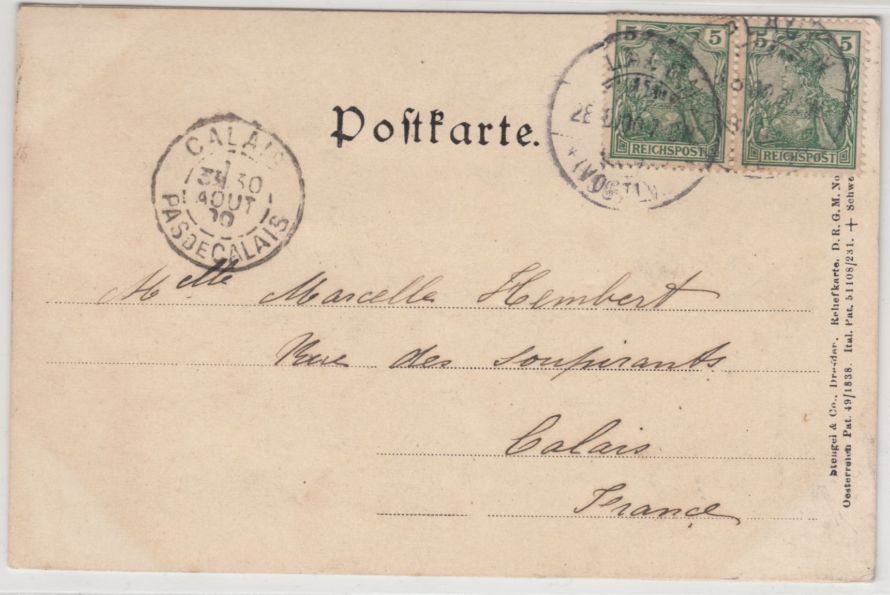 5 5 5 5
REICHSPOST REICHSPOST
Postkarte.
CALAIS
30
AOUT
PAS DE CALAIS
Melle Marcelle Hembert
Rue des Soupirants
Calais
France
Stengel & Co., Dresden. Reliefkarte. D. R. G. M. No
Oesterreich Pat. 49/1838. Ital. Pat. 51108/231. + Schwe